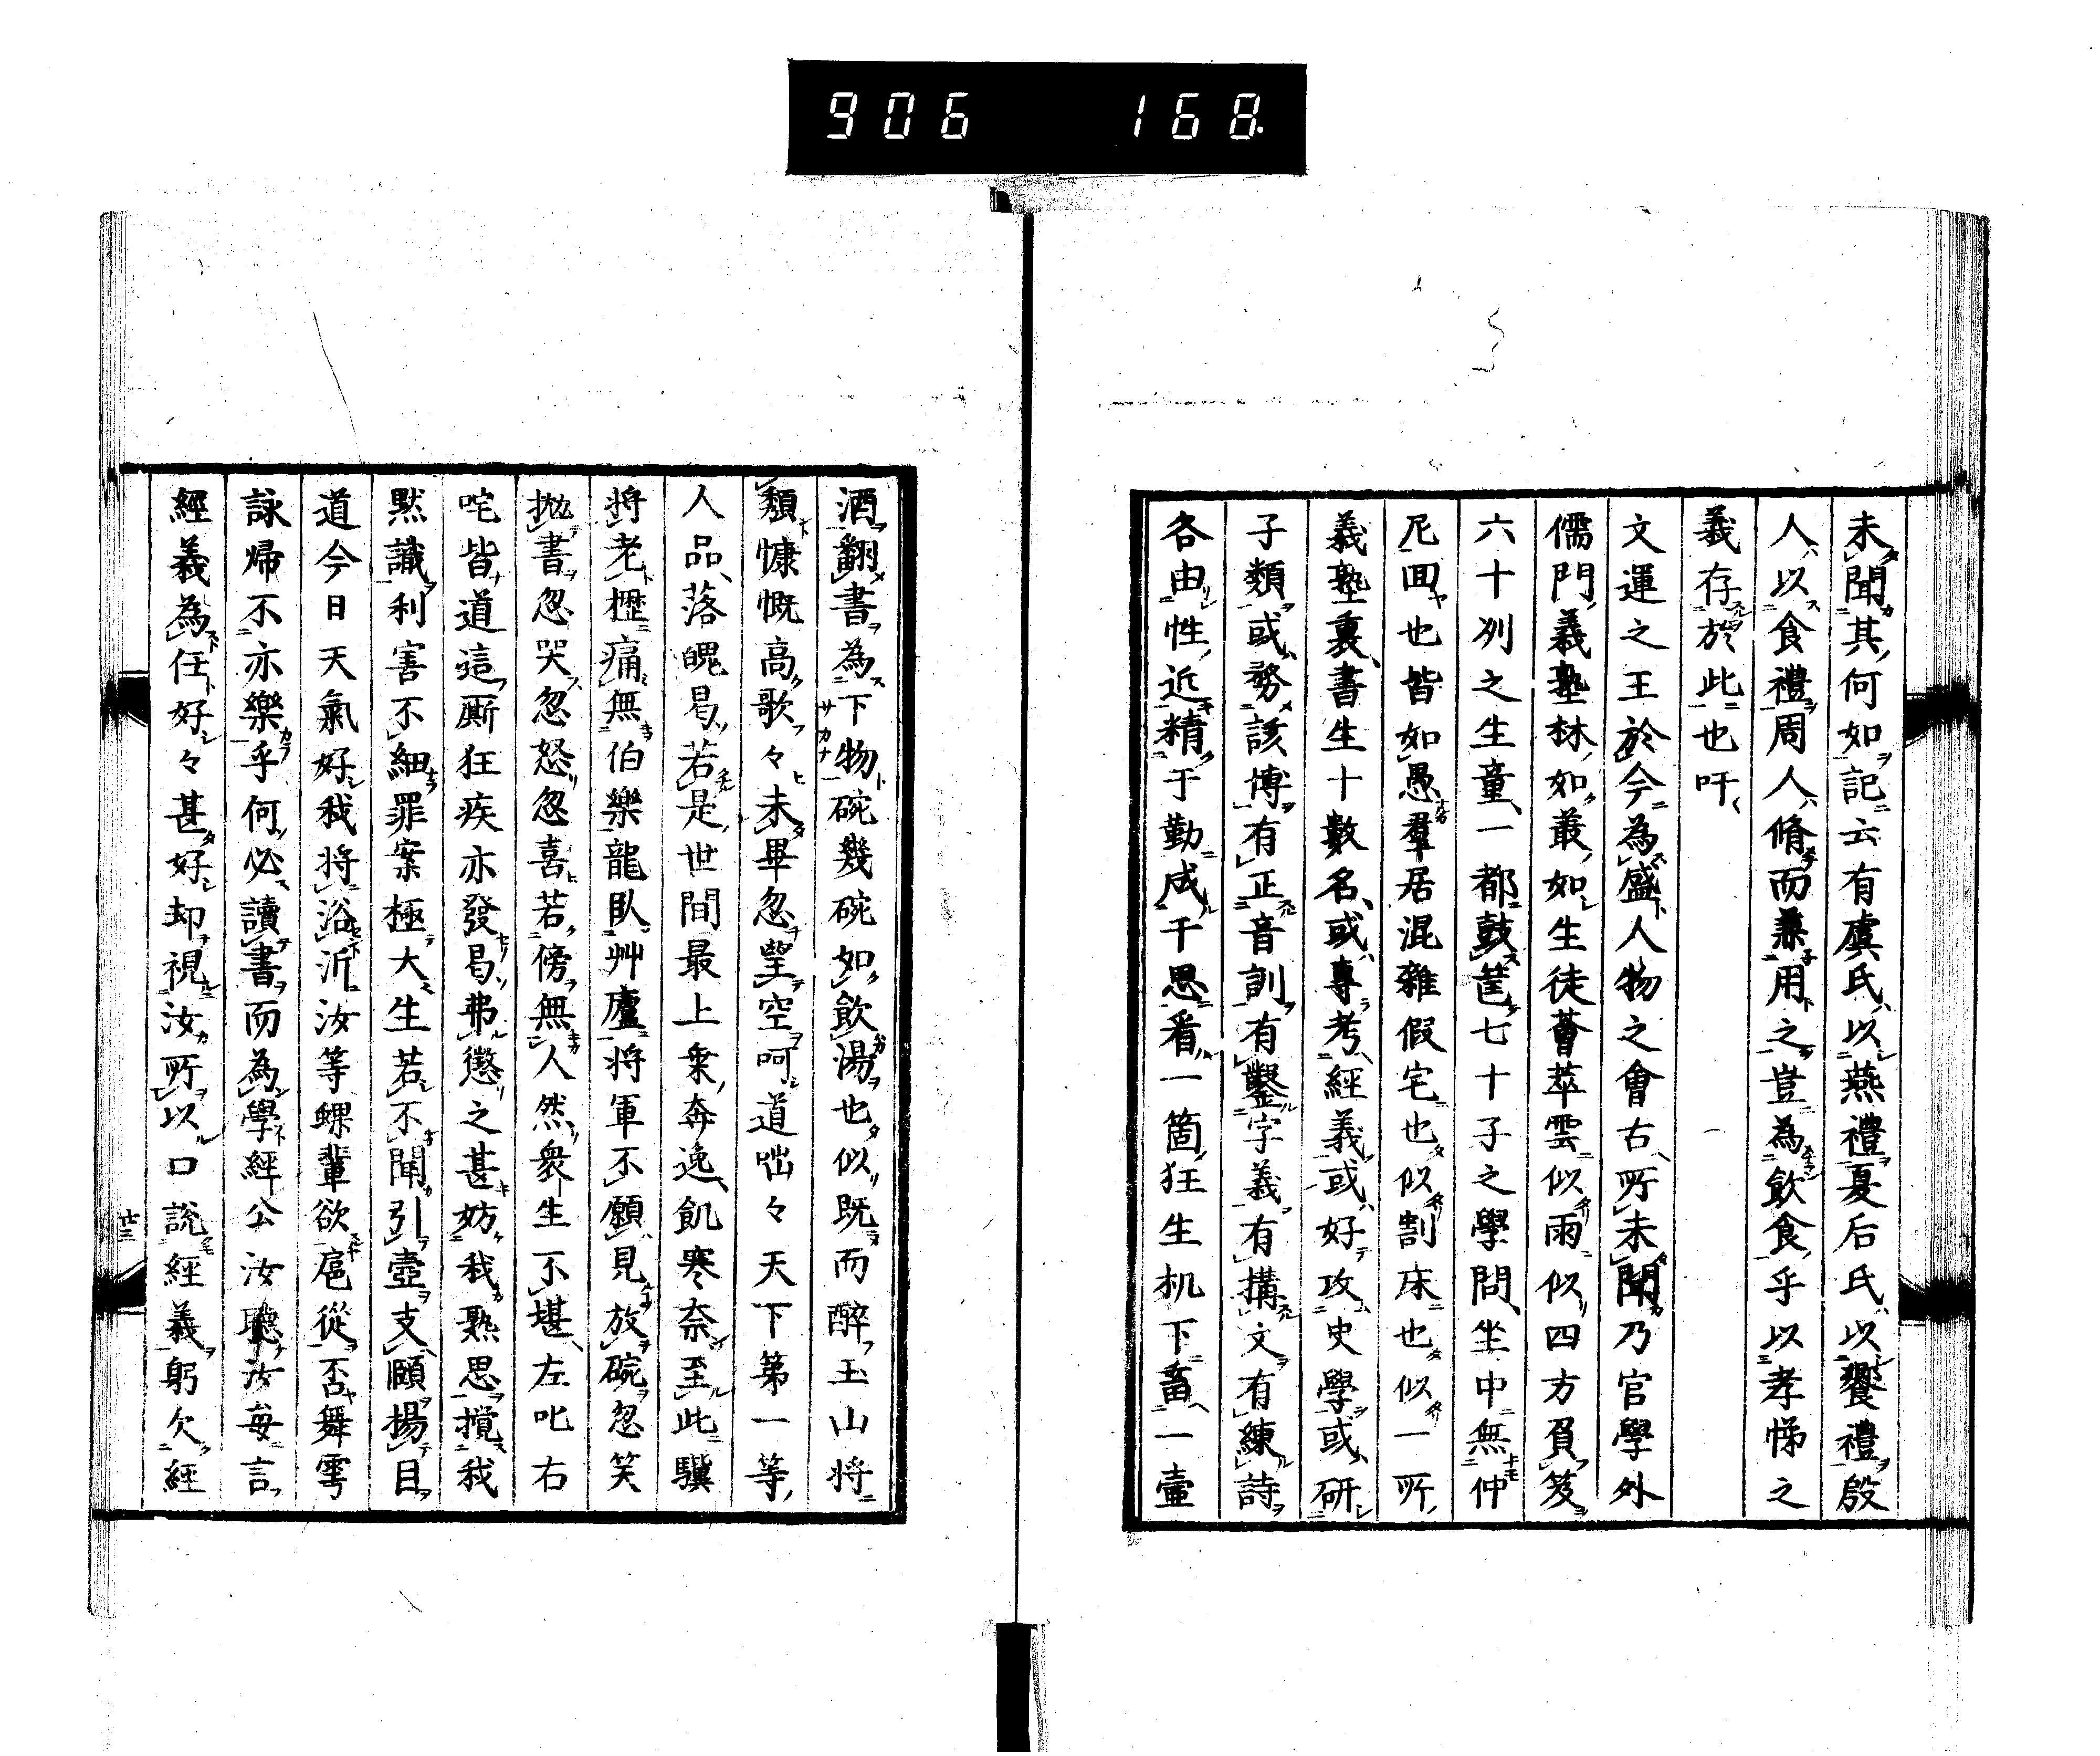 906 168.
未聞其何如記云有虞氏以燕禮夏后氏以饗禮殷
人以食禮周人脩而兼用之豈為飲食乎以孝悌之
義存於此也吁
文運之王於今為盛人物之會古所未聞乃官學外
儒門義塾林如叢如生徒薈萃雲似雨似四方負笈
六十列之生童一都鼓篋七十子之學問坐中無仲
尼回也皆如愚羣居混雜假宅也似割床也似一所
義塾裏書生十數名或專考經義或好攻史學或研
子類或務該博有正音訓有鑿字義有搆文有練詩
各由性近精于勤成于思看一箇狂生机下畜一壷
酒翻書為下物碗幾碗如飲湯也似既而醉玉山将
頽慷慨高歌々未畢忽望空呵道咄々天下第一等
人品落魄曷若是世間最上乗奔逸飢寒奈至此驥
将老櫪痛無伯樂龍臥艸廬将軍不願見放碗忽笑
拋書忽哭忽怒忽喜若傍無人然衆生不堪左叱右
咤皆道這厮狂疾亦發曷弗懲之甚妨我熟思攪我
黙識利害不細罪案極大生若不聞引壷支頤揚目
道今日天氣好我将浴沂汝等螺輩欲扈從否舞雩
詠帰不亦樂乎何必讀書而為學經公汝聽汝每言
經義為任好々甚好却視汝所以口說經義躬欠經
廿三
サカナ